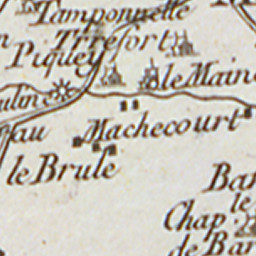 Tamponnelle
Tirefort
Piquey
le Maine
Machecourt
au
le Brule
Bar
le
Chap.
de Bar